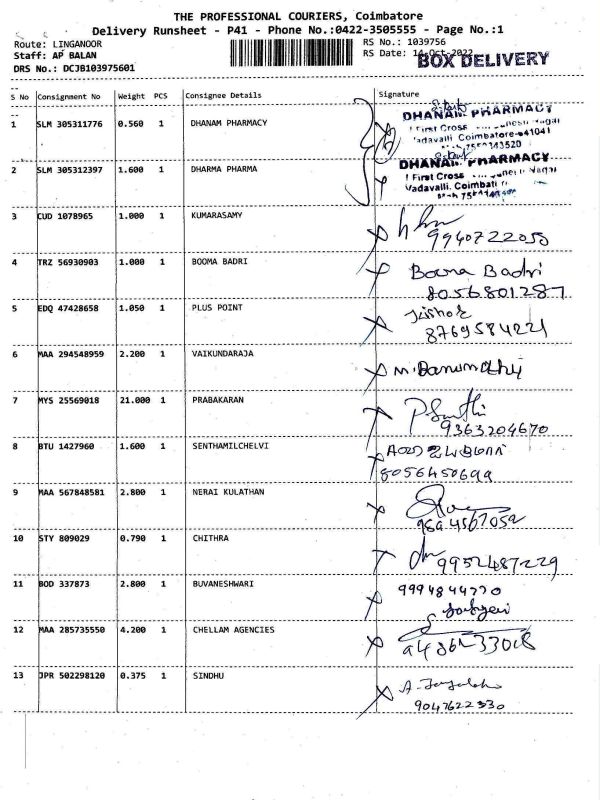 THE PROFESSIONAL COURIERS, Coimbatore
Delivery Runsheet - P41 - Phone No.:0422-3505555 - Page No.:1
Route: LINGANOOR
Staff: AP BALAN
DRS No.: DCJB103975601
RS No.: 1039756
RS Date: 14-Oct-2022
BOX DELIVERY
S No Consignment No Weight PCS Consignee Details Signature
1 SLM 305311776 0.560 1 DHANAM PHARMACY
DHANAM PHARMACY
I First Cross
Vadavalli, Coimbatore-641041
2 SLM 305312397 1.600 1 DHARMA PHARMA
DHANAM PHARMACY
I First Cross
Vadavalli, Coimbat
3 CUD 1078965 1.000 1 KUMARASAMY
9940722055
4 TRZ 56930903 1.000 1 BOOMA BADRI Booma Badri
8056801287
5 EDQ 47428658 1.050 1 PLUS POINT
8769584221
6 MAA 294548959 2.200 1 VAIKUNDARAJA
7 MYS 25569018 21.000 1 PRABAKARAN
9363204670
8 BTU 1427960 1.600 1 SENTHAMILCHELVI
8056450699
9 MAA 567848581 2.800 1 NERAI KULATHAN
9894567052
10 STY 809029 0.790 1 CHITHRA 9952487229
11 BOD 337873 2.800 1 BUVANESHWARI 9994844770
12 MAA 285735550 4.200 1 CHELLAM AGENCIES
13 JPR 502298120 0.375 1 SINDHU
9047622330